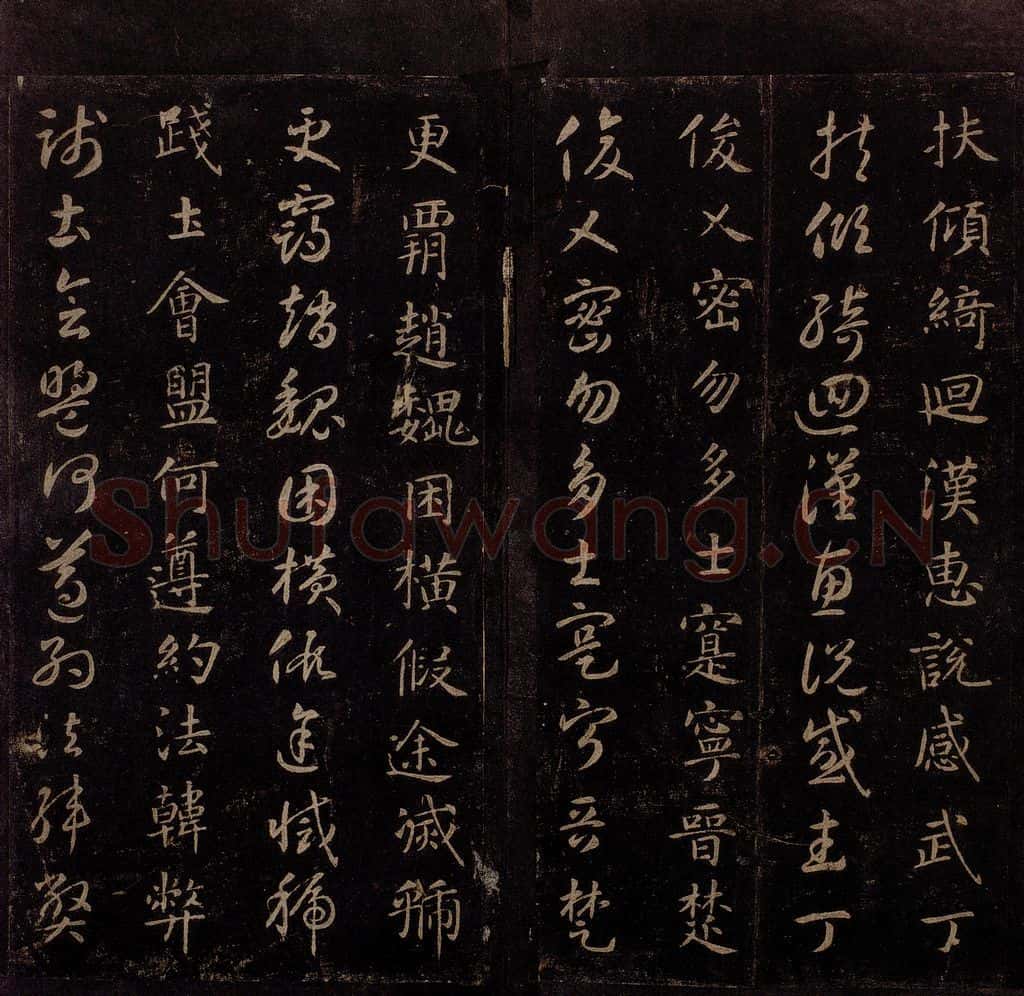 扶傾綺迴漢惠説感武丁
扶傾綺迴漢惠説感武丁
俊乂密勿多士寔寧晉楚
俊乂密勿多士寔寧晉楚
更霸趙魏困橫假途滅虢
更霸趙魏困橫假途滅虢
踐土會盟何遵約法韓弊
踐土會盟何遵約法韓弊
Shufawang.CN